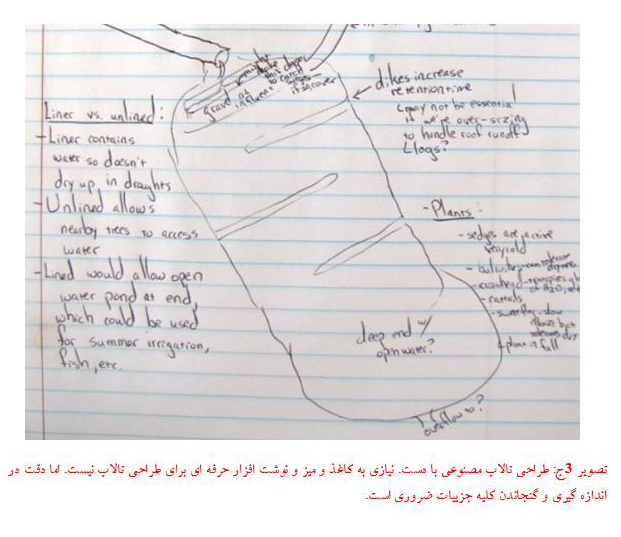 might
make
this deeper
to catch
gravel at
influent
dikes increase
retention time
(may not be essential
if we're over-sizing
to handle roof runoff
Logs?
Liner vs. unlined:
- Liner contains
water so doesn't
dry up in draughts
- Unlined allows
nearby trees to access
water
- Lined would allow open
water pond at end,
which could be used
for summer irrigation,
fish, etc.
- Plants:
- sedges are active
very cold
- cattails
plant in fall
deep end w/
open water?
overflow to?
تصویر 3ج: طراحی تالاب مصنوعی با دست. نیازی به کاغذ و میز و نوشت افزار حرفه ای برای طراحی تالاب نیست. اما دقت در
اندازه گیری و گنجاندن کلیه جزییات ضروری است.